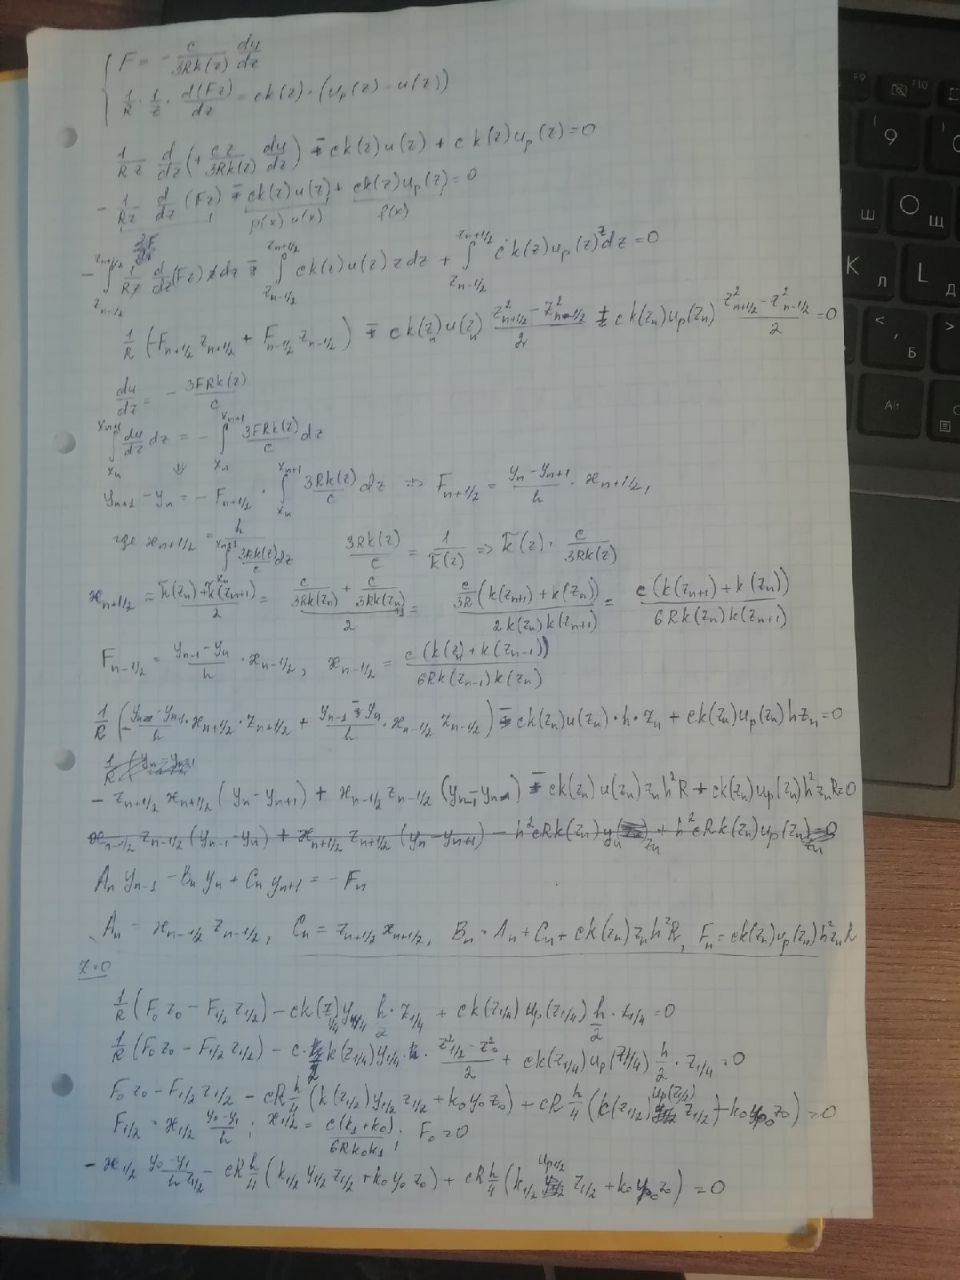 F = - c/(3Rk(z)) du/dz
1/R · 1/z · d(Fz)/dz = ck(z) · (u_p(z) - u(z))
1/(Rz) d/dz (+ cz/(3Rk(z)) du/dz) - ck(z)u(z) + ck(z)u_p(z) = 0
- 1/(Rz) d/dz (Fz) - ck(z)u(z) + ck(z)u_p(z) = 0
p(x) u(x) f(x)
- ∫_{z_{n-1/2}}^{z_{n+1/2}} 1/(Rz) d/dz (Fz) z dz - ∫_{z_{n-1/2}}^{z_{n+1/2}} ck(z)u(z) z dz + ∫_{z_{n-1/2}}^{z_{n+1/2}} ck(z)u_p(z) z dz = 0
1/R (-F_{n+1/2} z_{n+1/2} + F_{n-1/2} z_{n-1/2}) - ck(z_n)u(z_n) (z²_{n+1/2} - z²_{n-1/2})/2 + ck(z_n)u_p(z_n) (z²_{n+1/2} - z²_{n-1/2})/2 = 0
du/dz = - 3FRk(z)/c
∫_{x_n}^{x_{n+1}} du/dz dz = - ∫_{x_n}^{x_{n+1}} 3FRk(z)/c dz
⇓
y_{n+1} - y_n = - F_{n+1/2} · ∫_{x_n}^{x_{n+1}} 3Rk(z)/c dz ⇒ F_{n+1/2} = (y_n - y_{n+1})/h · ϰ_{n+1/2},
где ϰ_{n+1/2} = h / ∫_{x_n}^{x_{n+1}} 3Rk(z)/c dz 3Rk(z)/c = 1/k̄(z) ⇒ k̄(z) · c/(3Rk(z))
ϰ_{n+1/2} = (k̄(z_n) + k̄(z_{n+1}))/2 = (c/(3Rk(z_n)) + c/(3Rk(z_{n+1})))/2 = c/(3R) (k(z_{n+1}) + k(z_n)) / (2k(z_n)k(z_{n+1})) = c(k(z_{n+1}) + k(z_n)) / (6Rk(z_n)k(z_{n+1}))
F_{n-1/2} = (y_{n-1} - y_n)/h · ϰ_{n-1/2}, ϰ_{n-1/2} = c(k(z_n) + k(z_{n-1})) / (6Rk(z_{n-1})k(z_n))
1/R (- (y_n - y_{n+1})/h · ϰ_{n+1/2} · z_{n+1/2} + (y_{n-1} - y_n)/h · ϰ_{n-1/2} z_{n-1/2}) - ck(z_n)u(z_n) · h · z_n + ck(z_n)u_p(z_n)hz_n = 0
- z_{n+1/2} ϰ_{n+1/2} (y_n - y_{n+1}) + ϰ_{n-1/2} z_{n-1/2} (y_{n-1} - y_n) - ck(z_n)u(z_n)z_n h²R + ck(z_n)u_p(z_n)h²z_n R = 0
ϰ_{n-1/2} z_{n-1/2} (y_{n-1} - y_n) + ϰ_{n+1/2} z_{n+1/2} (y_n - y_{n+1}) - h²cRk(z_n)y_n z_n + h²cRk(z_n)u_p(z_n) z_n = 0
A_n y_{n-1} - B_n y_n + C_n y_{n+1} = - F_n
A_n = ϰ_{n-1/2} z_{n-1/2}, C_n = z_{n+1/2} ϰ_{n+1/2}, B_n = A_n + C_n + ck(z_n)z_n h²R, F_n = ck(z_n)u_p(z_n)h²z_n R
z=0
1/R (F_0 z_0 - F_{1/2} z_{1/2}) - ck(z_{1/4})y_{1/4} h/2 · z_{1/4} + ck(z_{1/4})u_p(z_{1/4}) h/2 · z_{1/4} = 0
1/R (F_0 z_0 - F_{1/2} z_{1/2}) - c · k(z_{1/4})y_{1/4} · (z²_{1/2} - z²_0)/2 + ck(z_{1/4})u_p(z_{1/4}) h/2 · z_{1/4} = 0
F_0 z_0 - F_{1/2} z_{1/2} - cR h/4 (k(z_{1/2})y_{1/2} z_{1/2} + k_0 y_0 z_0) + cR h/4 (k(z_{1/2}) u_p(z_{1/2}) z_{1/2} + k_0 u_{p0} z_0) = 0
F_{1/2} = ϰ_{1/2} (y_0 - y_1)/h ; ϰ_{1/2} = c(k_1 + k_0)/(6Rk_0k_1) ; F_0 = 0
- ϰ_{1/2} (y_0 - y_1)/h z_{1/2} - cR h/4 (k_{1/2} y_{1/2} z_{1/2} + k_0 y_0 z_0) + cR h/4 (k_{1/2} u_{p1/2} z_{1/2} + k_0 u_{p0} z_0) = 0
F9
F10
9
Ш
O
Щ
K
Л
L
Д
<
Б
Alt